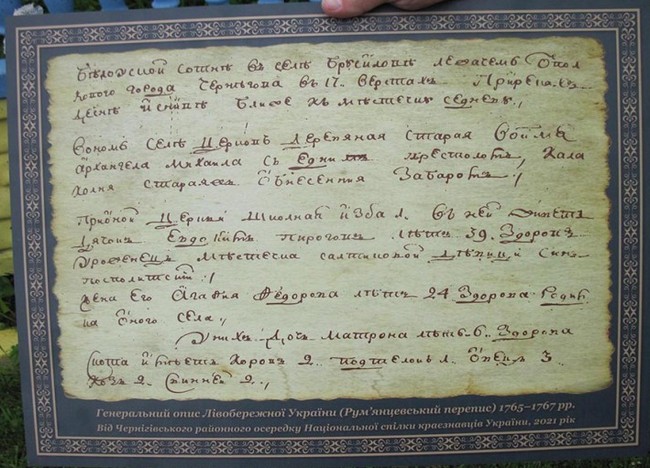 Бѣлоуской Сотнѣ въ селѣ Брусиловѣ лежачемъ
города Чернѣгова въ 17. верстахъ При рекахъ
Деснѣ и Снѣвѣ Ближе къ мѣстечку Седневъ
Вономъ Селѣ Церковъ деревяная старая
архангела михаила съ Едни престоломъ Кала
колня старая Забором
При оной Церкви Школная изба 1. в ней
дячокъ пирогов лѣтъ 39. Здоров
мѣстечка Салтиковой
посполитст
жена Его Агафия Федорова лѣтъ 24 Здорова Родим
на Оного села
У них Дочъ Матрона лѣтъ 6. Здорова
Скота имѣетъ Коров 2 подтелокъ 1 Овецъ 3
Коз 2 Свинней 2
Генеральний опис Лівобережної України (Рум'янцевський перепис) 1765–1767 рр.
Від Чернігівського районного осередку Національної спілки краєзнавців України, 2021 рік